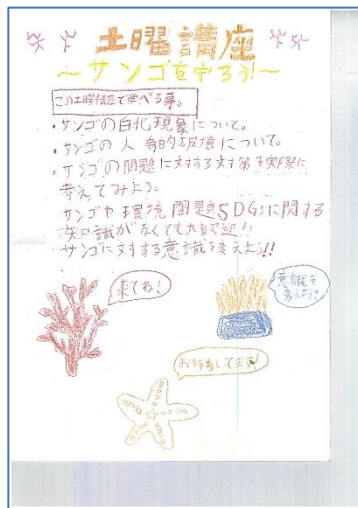 土曜講座
～サンゴを守ろう！～
この土曜講座で学べる事。
・サンゴの白化現象について。
・サンゴの人為的破壊について。
・サンゴの問題に対する対策を実際に
考えてみよう。
サンゴや環境問題SDGsに関する
知識がなくても大歓迎！！
サンゴに対する意識を変えよう！！
来てね！
意識を
変えよう！
お待ちしてます！